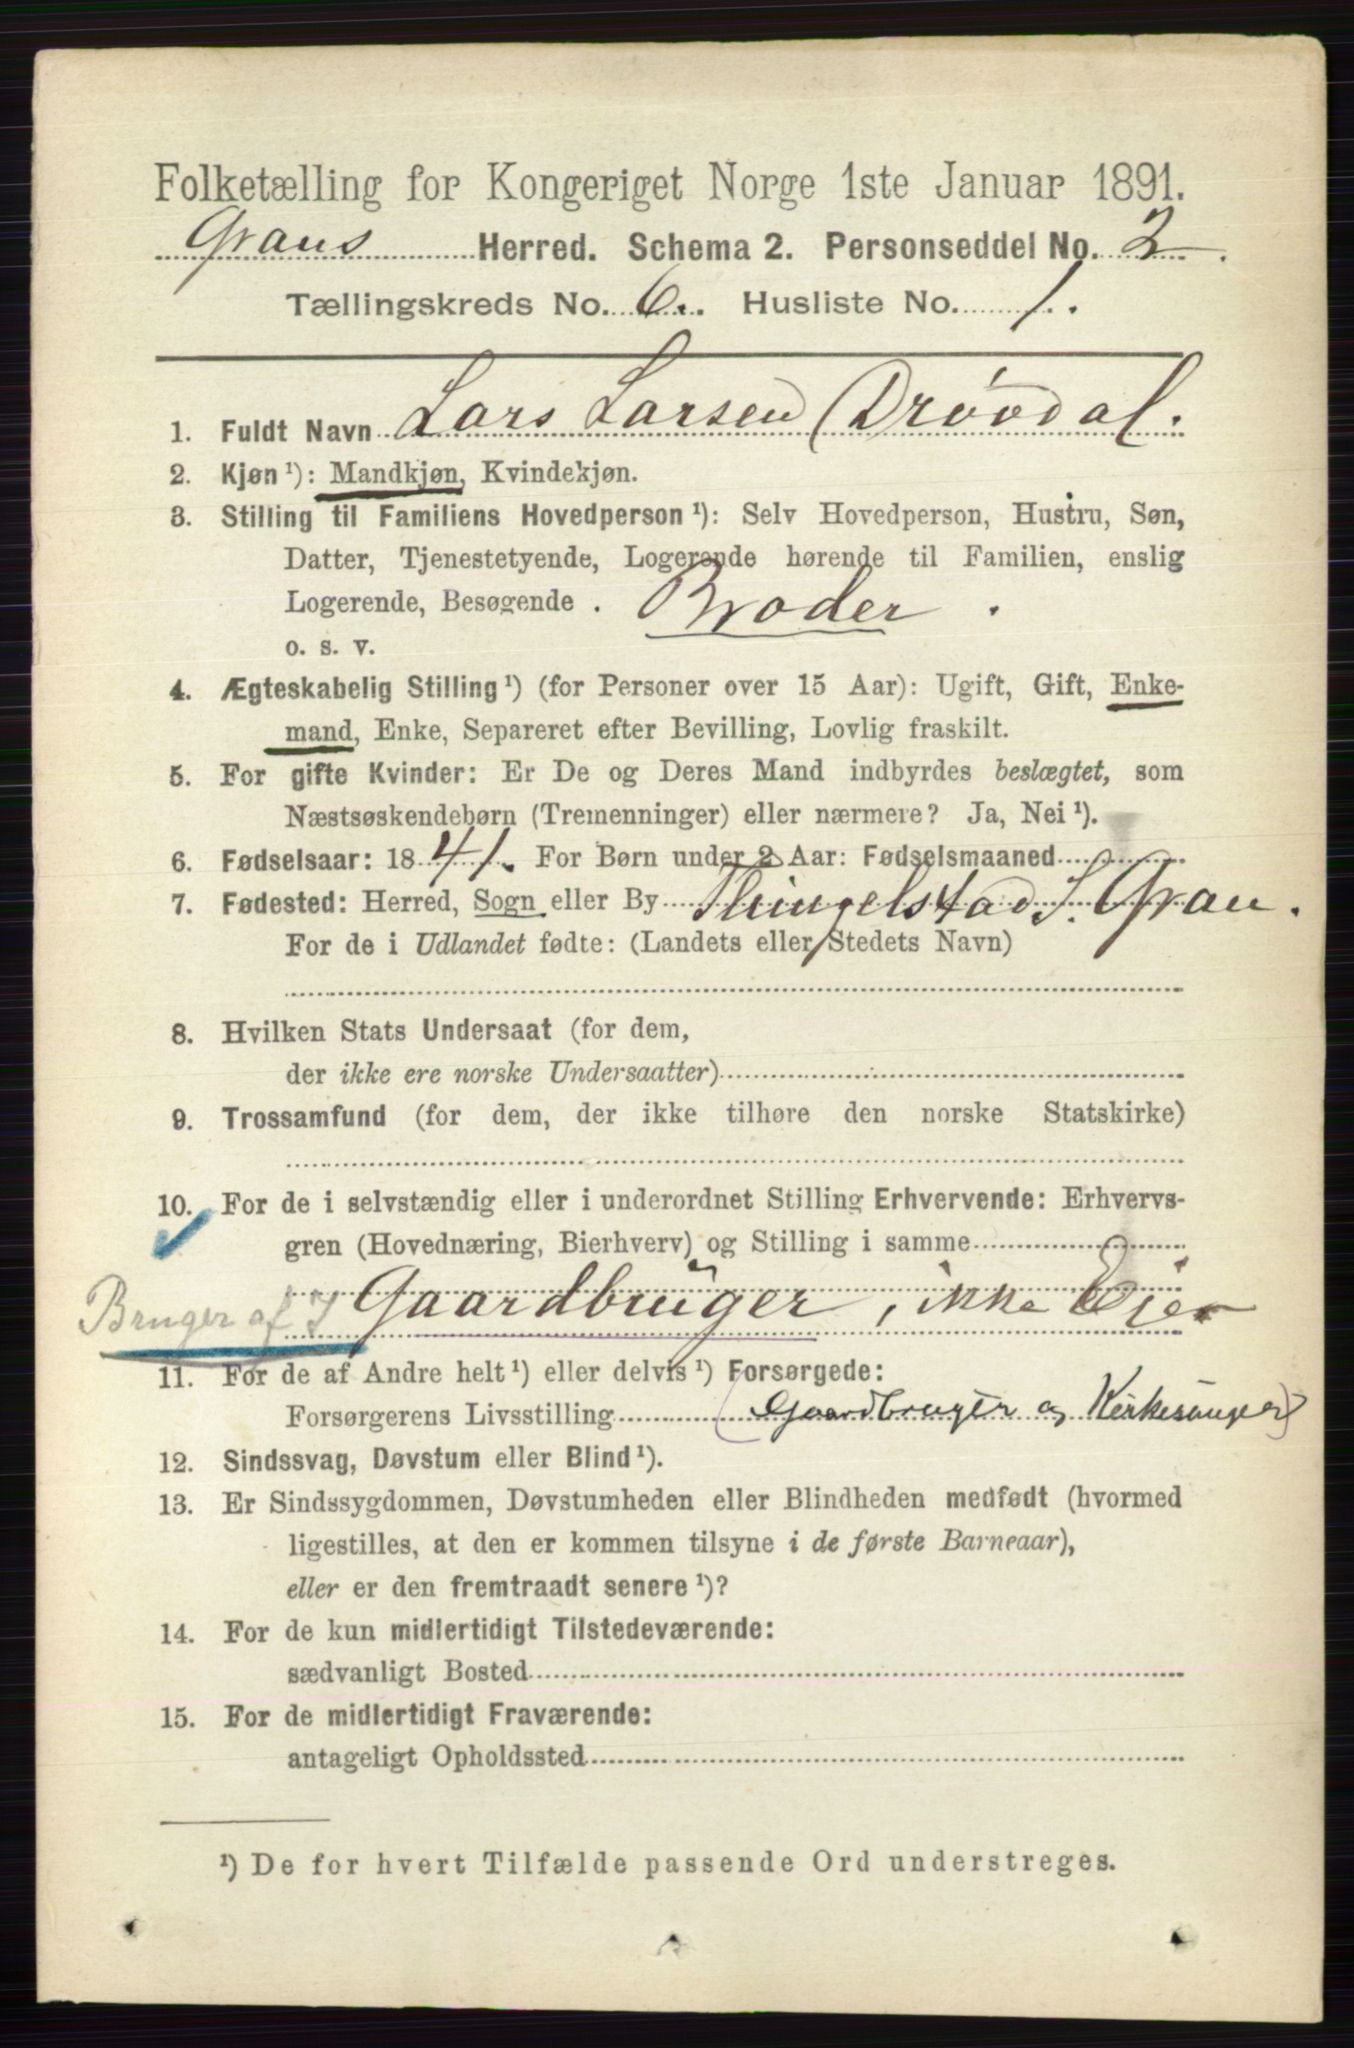 Folketælling for Kongeriget Norge 1ste Januar 1891.
Grans Herred. Schema 2. Personseddel No. 2.
Tællingskreds No. 6. Husliste No. 1.
1. Fuldt Navn Lars Larsen Drövdal.
2. Kjøn ¹): Mandkjøn, Kvindekjøn.
3. Stilling til Familiens Hovedperson ¹): Selv Hovedperson, Hustru, Søn,
Datter, Tjenestetyende, Logerende hørende til Familien, enslig
Logerende, Besøgende . Broder .
o. s. v.
4. Ægteskabelig Stilling ¹) (for Personer over 15 Aar): Ugift, Gift, Enke-
mand, Enke, Separeret efter Bevilling, Lovlig fraskilt.
5. For gifte Kvinder: Er De og Deres Mand indbyrdes beslægtet, som
Næstsøskendebørn (Tremenninger) eller nærmere? Ja, Nei ¹).
6. Fødselsaar: 1841. For Børn under 2 Aar: Fødselsmaaned
7. Fødested: Herred, Sogn eller By Thingelstad S. Gran.
For de i Udlandet fødte: (Landets eller Stedets Navn)
8. Hvilken Stats Undersaat (for dem,
der ikke ere norske Undersaatter)
9. Trossamfund (for dem, der ikke tilhøre den norske Statskirke)
10. For de i selvstændig eller i underordnet Stilling Erhvervende: Erhvervs-
gren (Hovednæring, Bierhverv) og Stilling i samme
Bruger af J Gaardbruger, ikke Ejer
11. For de af Andre helt ¹) eller delvis ¹) Forsørgede:
Forsørgerens Livsstilling (Gaardbruger og Kirkesanger)
12. Sindssvag, Døvstum eller Blind ¹).
13. Er Sindssygdommen, Døvstumheden eller Blindheden medfødt (hvormed
ligestilles, at den er kommen tilsyne i de første Barneaar),
eller er den fremtraadt senere ¹)?
14. For de kun midlertidigt Tilstedeværende:
sædvanligt Bosted
15. For de midlertidigt Fraværende:
antageligt Opholdssted
¹) De for hvert Tilfælde passende Ord understreges.